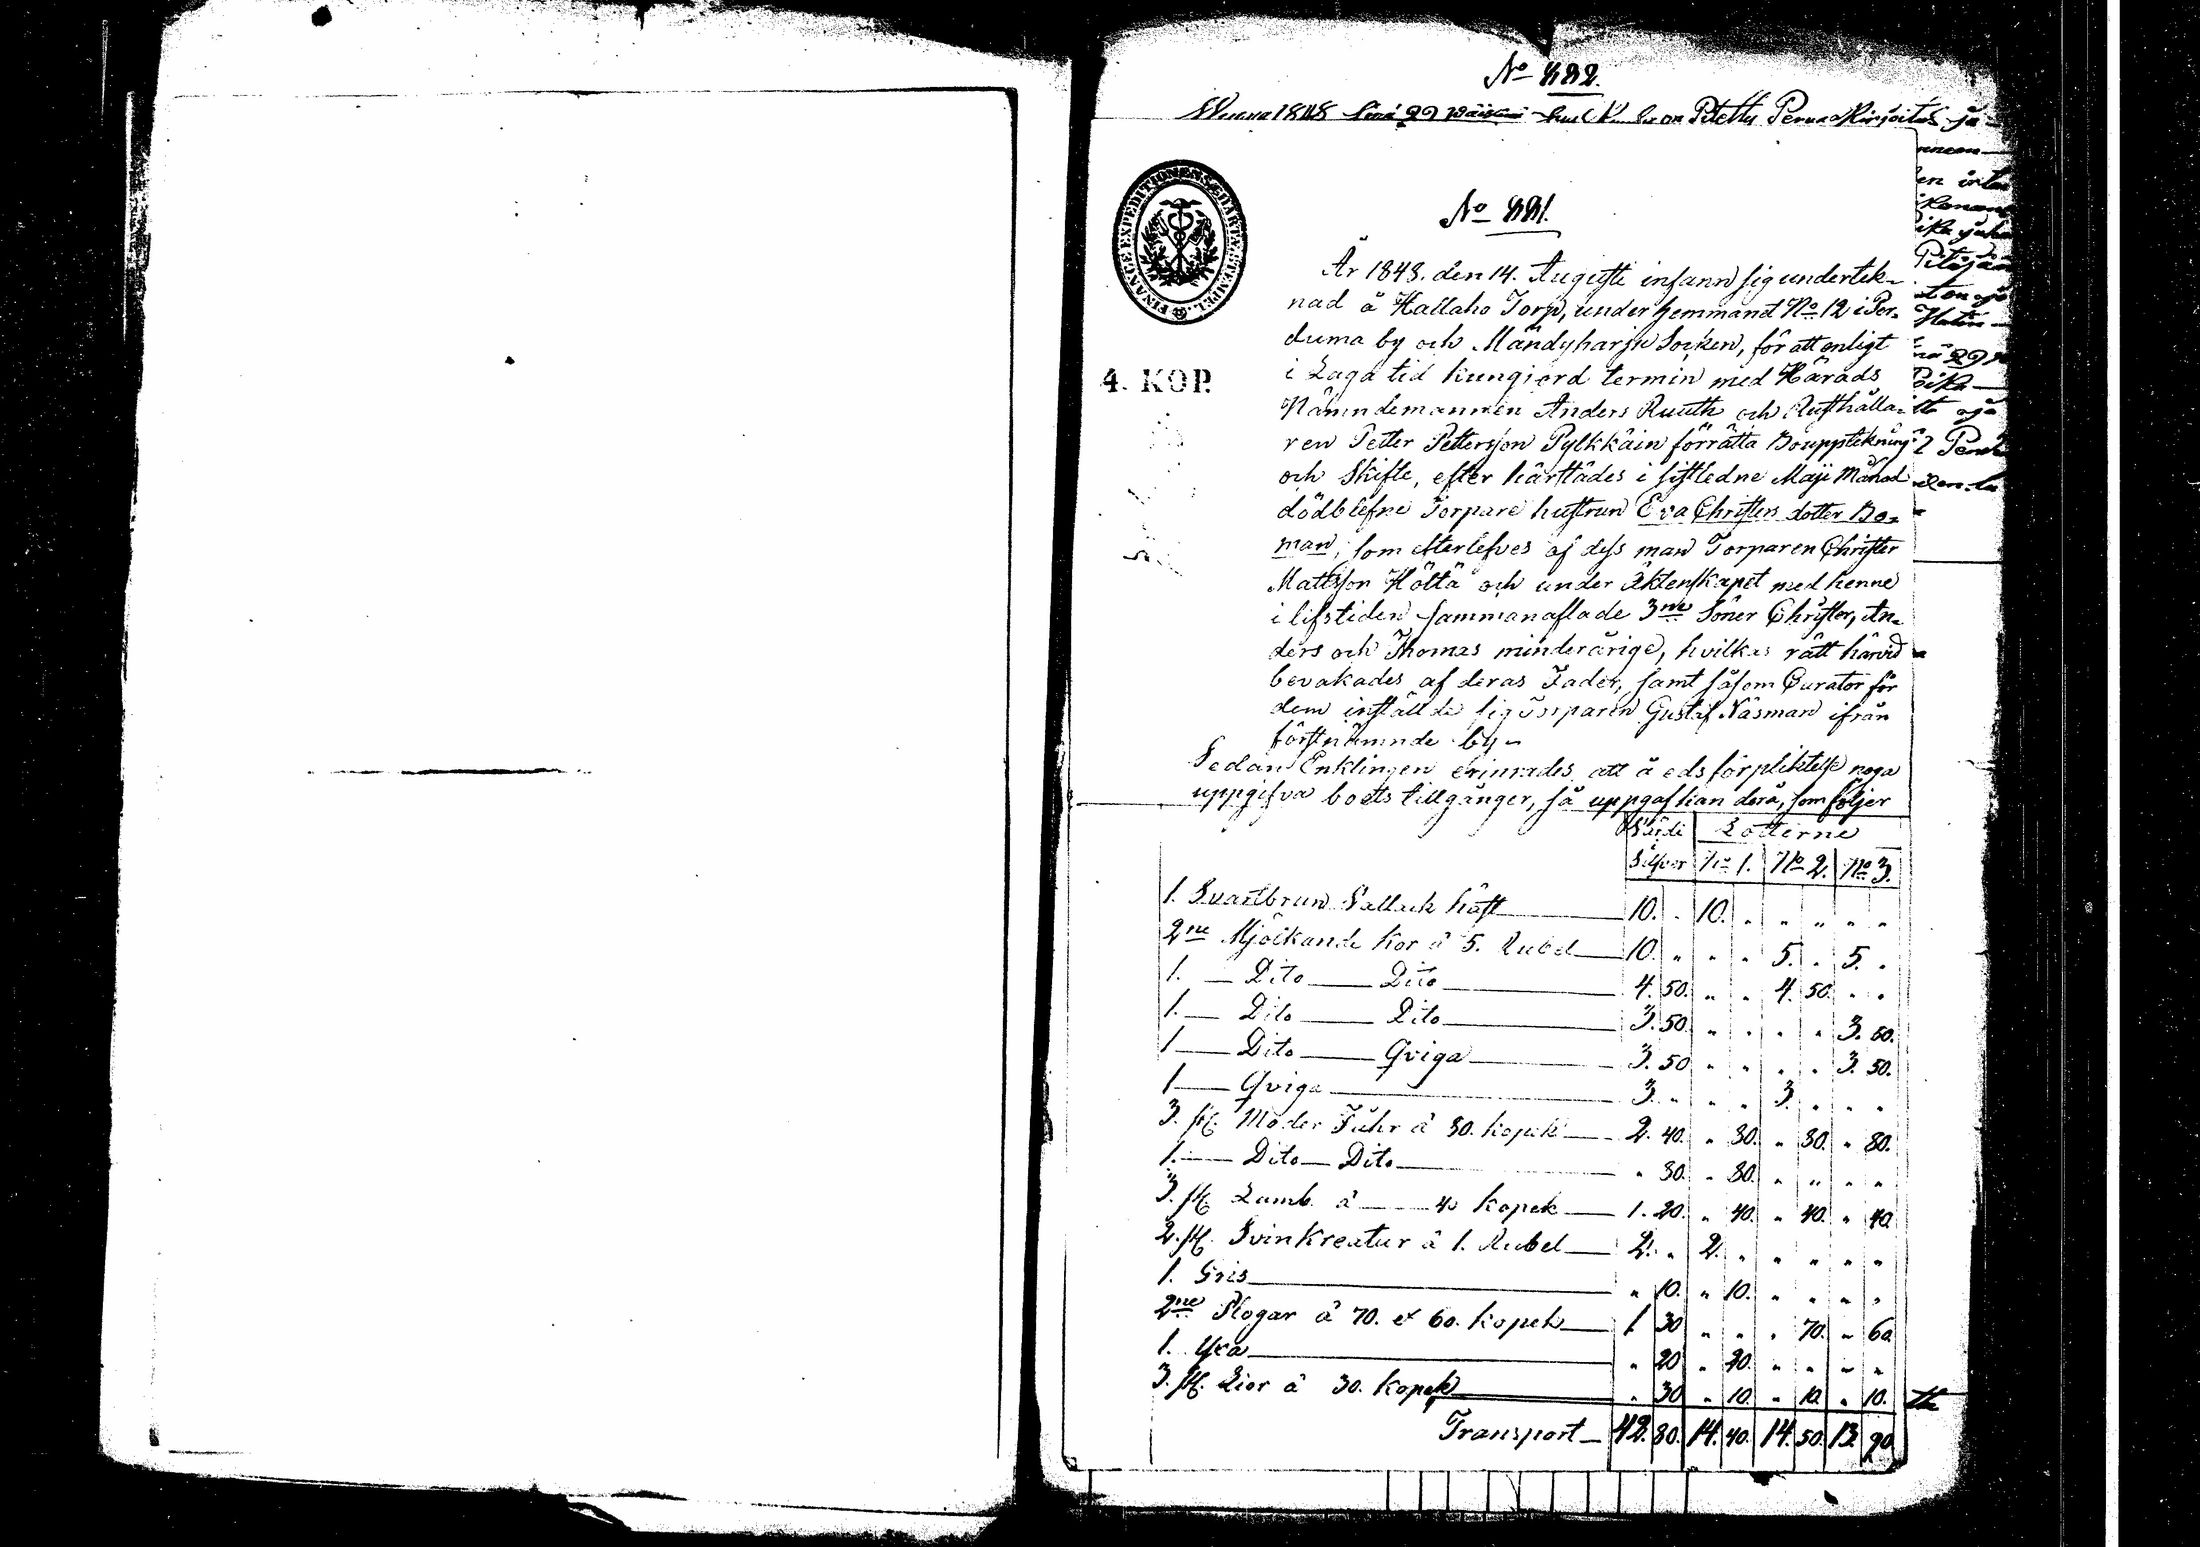 No 882.
1848 on Pitetty Perua Kirjoitus ja
FINANCE EXPEDITIONENS CHARTÆ STEMPEL
4. KOP.
No 881.
År 1848. den 14. Augusti infann sig undertek-
nad å Hallaho Torp, under hemmanet No 12 i Per-
duma by och Mändyharju Socken, för att enligt
i Laga tid kungjord termin med Härads
Nämndemannen Anders Ruuth och Rusthålla-
ren Petter Pettersson Pylkkäin förrätta Bouppteknings
och Skifte, efter härstädes i sistledne Maji Månad
dödblefne Torpare hustrun Eva Christers dotter Bo-
man, som efterlefves af dess man Torparen Christer
Mattsson Höltä och under äktenskapet med henne
i lifstiden sammanaflade 3ne Söner Christer, An-
ders och Thomas minderårige, hvilkas rätt härvid
bevakades af deras Fader, samt såsom Curator för
dem inställde sig Torparen Gustaf Näsman ifrån
förstnämnde by-
Sedan Enklingen erinrades att å eds förpliktelse noga
uppgifva boets tillgånger, så uppgaf han derå, som följer
Värde Lotterne
Silfver No 1. No 2. No 3.
1. Svartbrun Vallack häst 10. „ 10. „ „ „ „ „
2ne Mjölkande Kor á 5. Rubel 10. „ „ „ 5. „ 5. „
1. — Dito — Dito 4. 50. „ „ 4. 50. „ „
1. — Dito — Dito 3. 50. „ „ „ „ 3. 50.
1 — Dito — Qviga 3. 50 „ „ „ „ 3. 50.
1 — Qviga 3. „ „ „ 3. „ „ „
3. st. Moder Fåhr á 80. kopek 2. 40. „ 80. „ 80. „ 80.
1. — Dito — Dito „ 80. „ 80. „ „ „ „
3. st. Lamb á — 40 kopek 1. 20. „ 40. „ 40. „ 40.
2. st. Svinkreatur á 1. Rubel 2. „ 2. „ „ „ „ „
1. Gris „ 10. „ 10. „ „ „ „
2ne Plogar á 70. et 60. kopek 1 30 „ „ „ 70. „ 60
1. Yxa „ 20 „ 20. „ „ „ „
3. st. Lior á 30. kopek „ 30 „ 10. „ 10. „ 10.
Transport 42. 80. 14. 40. 14. 50. 13. 90